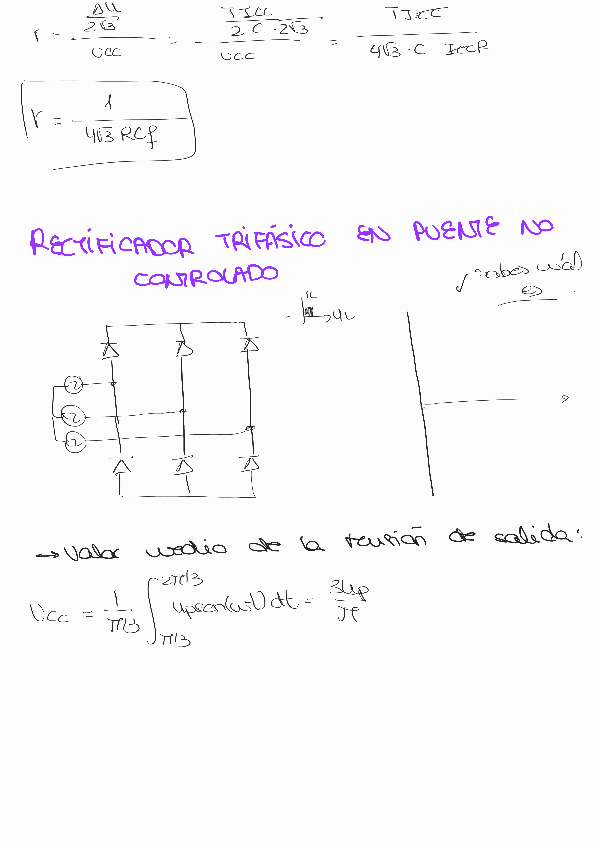 r = (ΔU / 2√3) / Ucc = (T Icc / 2·C·2√3) / Ucc = T Icc / 4√3·C Icc R
r = 1 / 4√3 RCf
RECTIFICADOR TRIFÁSICO EN PUENTE NO
CONTROLADO
→ Valor medio de la tensión de salida:
Ucc = 1/π/3 ∫ π/3 2π/3 Up sen(ωt) dt = 3Up/π